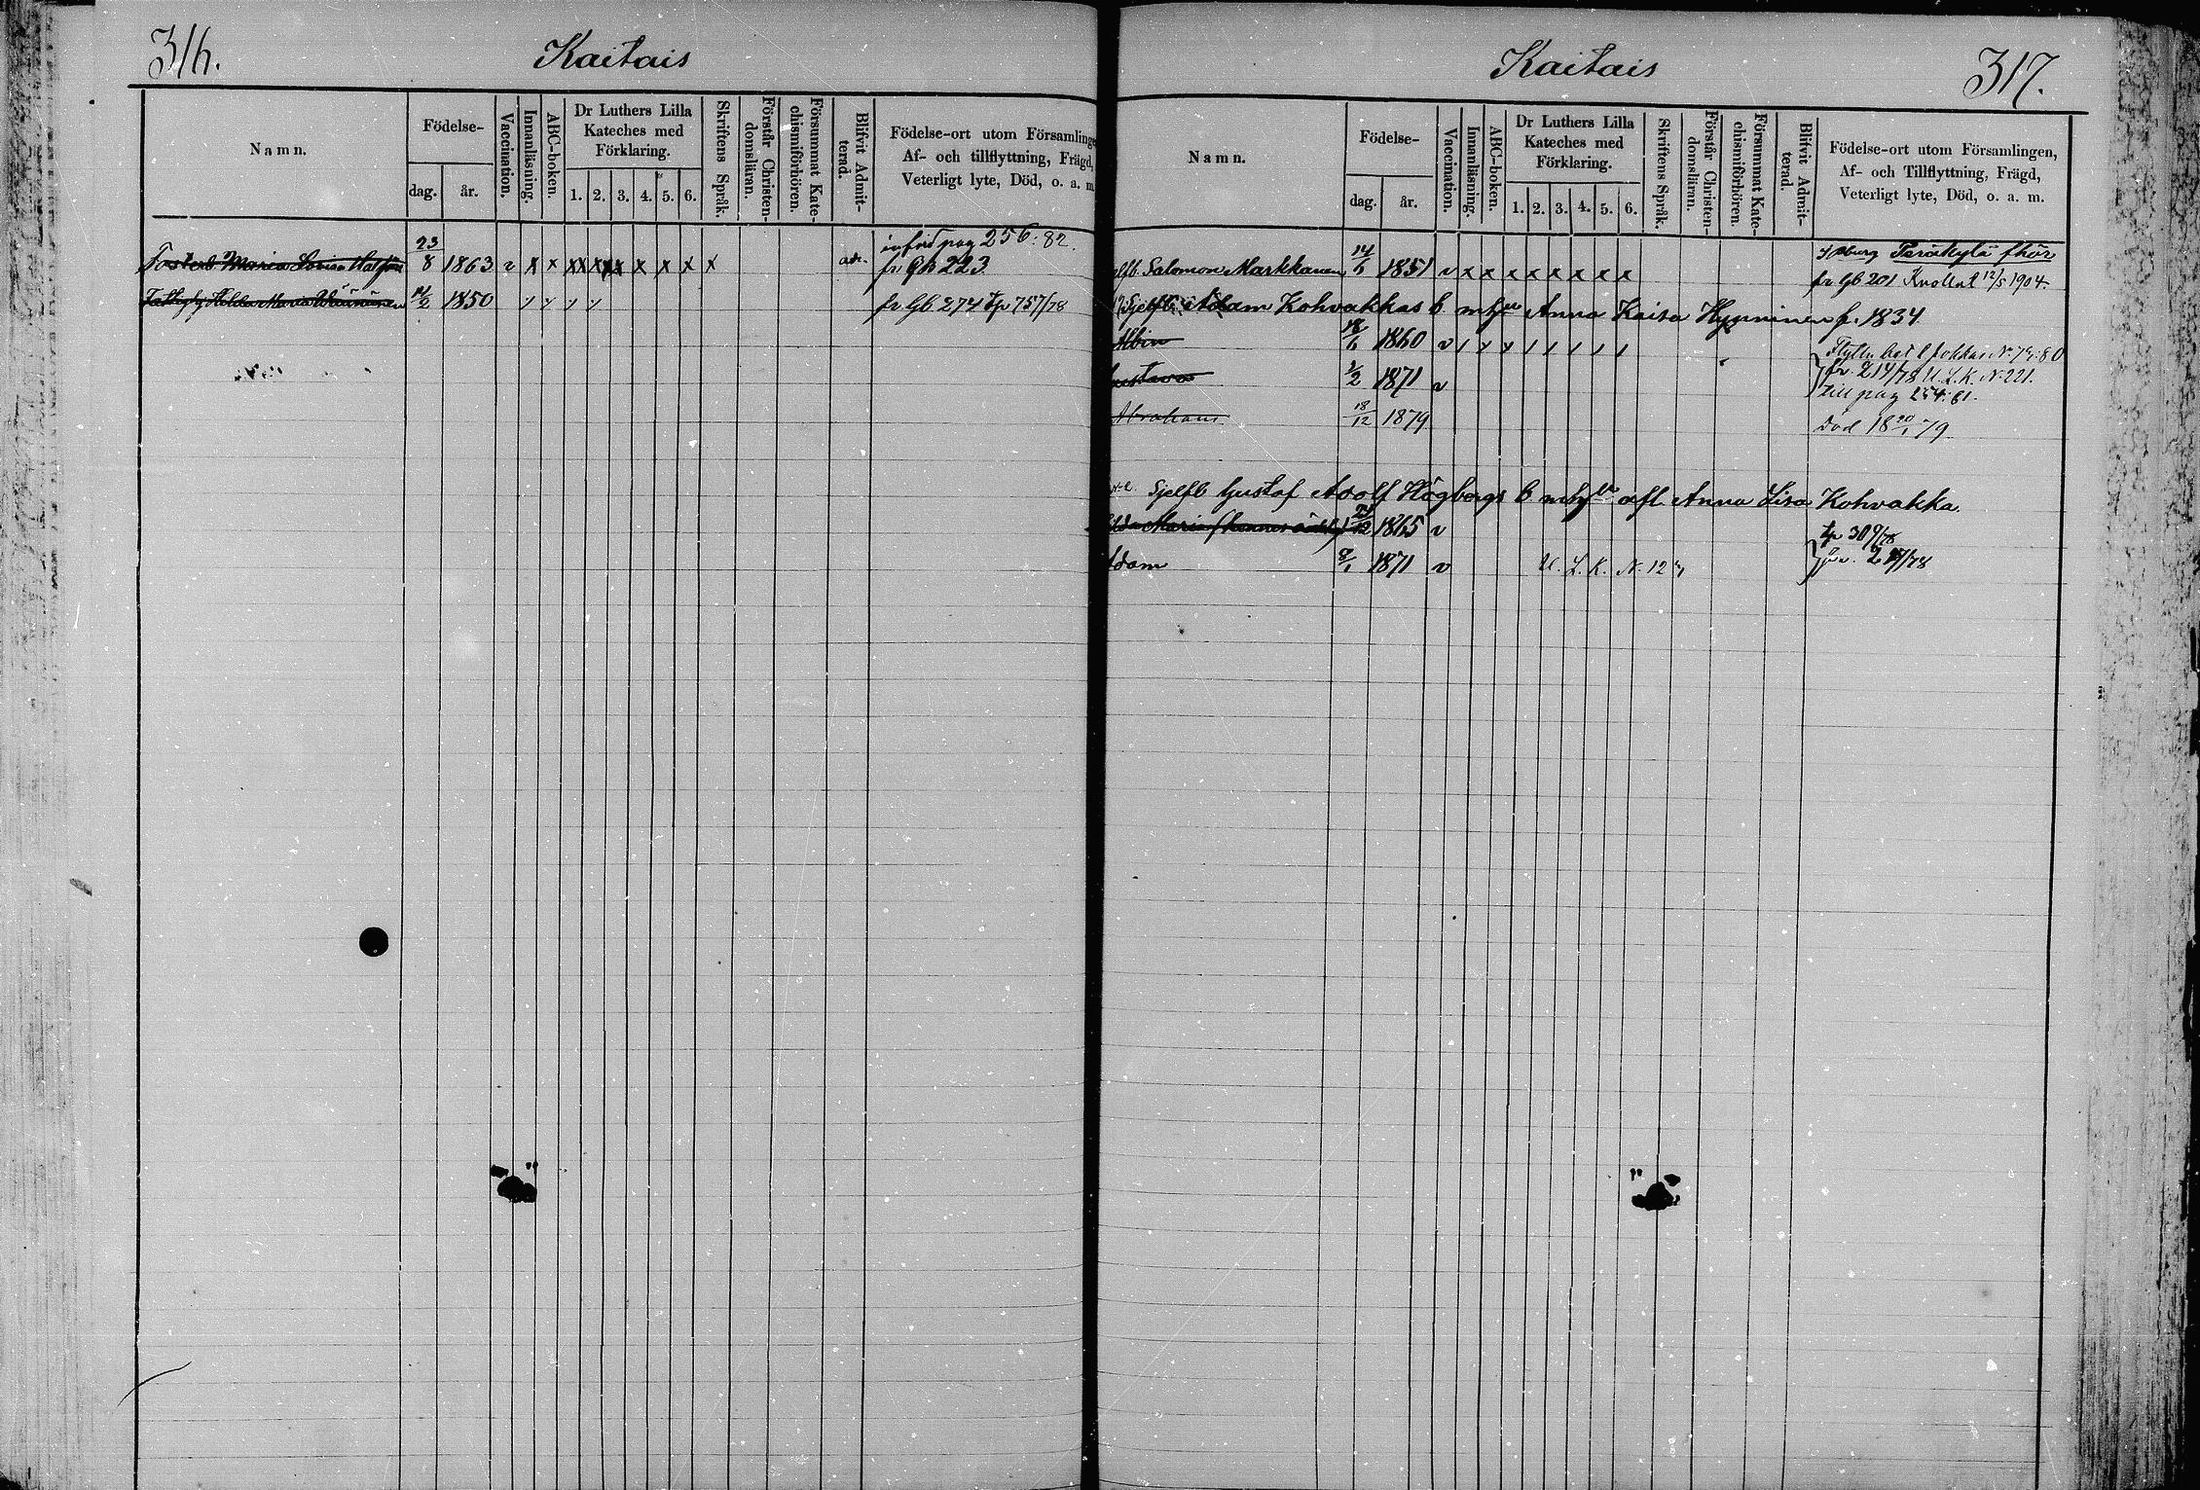 316.
Kaitais
Namn.
Födelse-
dag.
år.
Vaccination.
Innanläsning.
ABC-boken.
Dr Luthers Lilla
Kateches med
Förklaring.
1. 2. 3. 4. 5. 6.
Skriftens Språk.
Förstår Christen-
domsläran.
Försummat Kate-
chismiförhören.
Blifvit Admit-
terad.
Födelse-ort utom Församlinge
Af- och tillflyttning, Frägd,
Veterligt lyte, Död, o. a. m
införd pag 256:82.
Maria Lovisa 23/8 1863 v x x xx xx xx x x x x adm. fr Gb 223
Hilda Maria Väänänen /2 1850 fr Gb 274 tp 757/78
Kaitais
317.
Namn.
Födelse-
dag.
år.
Vaccination.
Innanläsning.
ABC-boken.
Dr Luthers Lilla
Kateches med
Förklaring.
1. 2. 3. 4. 5. 6.
Skriftens Språk.
Förstår Christen-
domsläran.
Försummat Kate-
chismiförhören.
Blifvit Admit-
terad.
Födelse-ort utom Församlingen,
Af- och Tillflyttning, Frägd,
Veterligt lyte, Död, o. a. m.
Salomon Markkanen 14/6 1851 v x x x x x x x x
fr Gb 201 Kuollut 12/5 1904
Sjelfb. Adam Kohvakkas b. m hu Anna Kaisa Hynninen f. 1834
Albin 18/6 1860 v
Gustava 2/2 1871 v fr. 214/78 U.L.K. N. 221.
till pag 254:81.
Abraham 18/12 1879 Död 18 /1 79
Sjelfb Gustaf Adolf Högbergs b m hu afl. Anna Lisa Kohvakka.
Maria /12 1865 v tp 309/78
Adam 8/1 1871 v U. L. K. N. 12